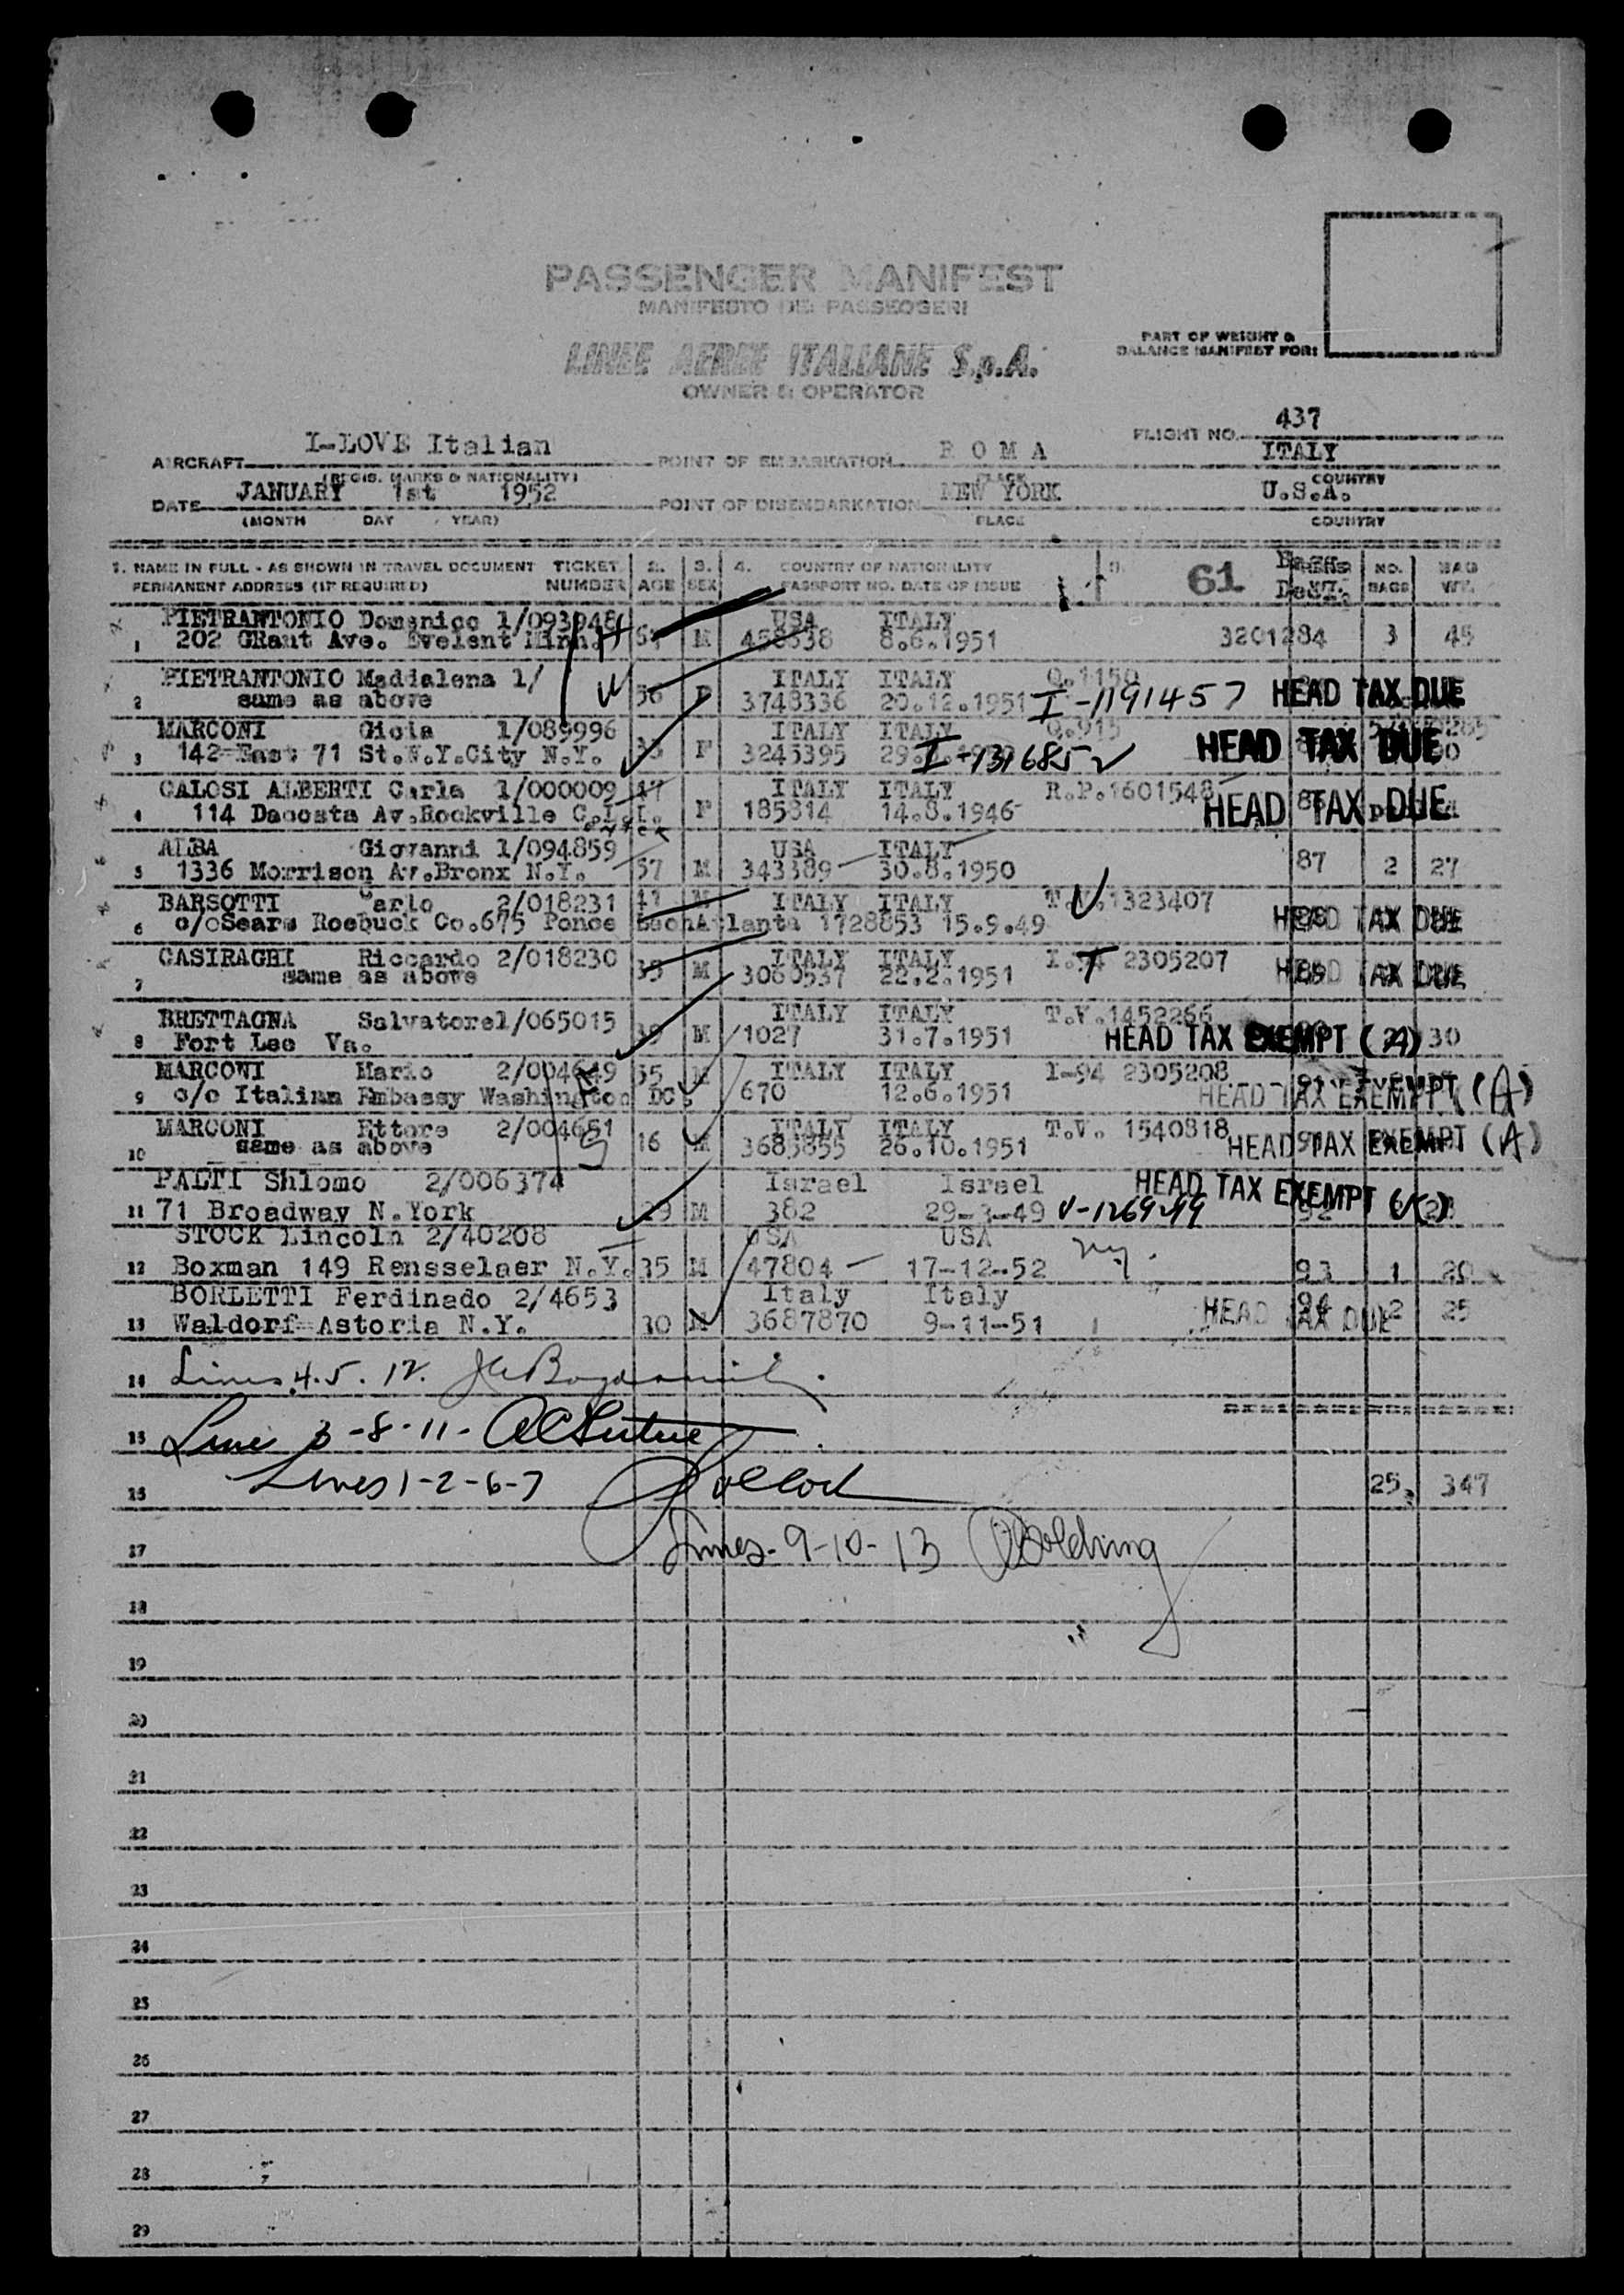 PASSENGER MANIFEST
MANIFESTO DEI PASSEGGERI
LINEE AEREE ITALIANE S.p.A.
OWNER & OPERATOR
PART OF WEIGHT &
BALANCE MANIFEST FOR:
FLIGHT NO. 437
AIRCRAFT I-LOVE Italian POINT OF EMBARKATION R O M A ITALY
(REGIS. MARKS & NATIONALITY) PLACE COUNTRY
DATE JANUARY 1st 1952 POINT OF DISEMBARKATION NEW YORK U.S.A.
(MONTH DAY YEAR) PLACE COUNTRY
1. NAME IN FULL - AS SHOWN IN TRAVEL DOCUMENT TICKET 2. 3. 4. COUNTRY OF NATIONALITY 61 NO. BAG
PERMANENT ADDRESS (IF REQUIRED) NUMBER AGE SEX PASSPORT NO. DATE OF ISSUE BAGS WT.
PIETRANTONIO Domenico 1/093948 USA ITALY
1 202 GRant Ave. Evelent Minn. M 458538 8.6.1951 3201284 3 45
PIETRANTONIO Maddalena 1/ ITALY ITALY Q.1150
2 same as above 56 F 3748336 20.12.1951 I-1191457 HEAD TAX DUE
MARCONI Gioia 1/089996 ITALY ITALY Q.915
3 142 East 71 St.N.Y.City N.Y. F 3245395 HEAD TAX DUE
CALOSI ALBERTI Carla 1/000009 47 ITALY ITALY R.P.1601548
4 114 Dacosta Av.Rockville F 185814 14.8.1946 HEAD TAX DUE
ALBA Giovanni 1/094859 USA ITALY
5 1336 Morrison Av.Bronx N.Y. 57 M 343389 30.8.1950 87 2 27
BARSOTTI Carlo 2/018231 ITALY ITALY T.V.1323407
6 c/oSears Roebuck Co.675 Ponce Atlanta 1728853 15.9.49 HEAD TAX DUE
CASIRAGHI Riccardo 2/018230 ITALY ITALY I-94 2305207
7 same as above M 3060537 22.2.1951 HEAD TAX DUE
BRETTAGNA Salvatore1/065015 ITALY ITALY T.V.1452266
8 Fort Lee Va. 39 M 1027 31.7.1951 HEAD TAX EXEMPT (A) 30
MARCONI Mario 2/004649 55 M ITALY ITALY I-94 2305208
9 c/o Italian Embassy Washington DC. 670 12.6.1951 HEAD TAX EXEMPT (A)
MARCONI Ettore 2/004651 ITALY ITALY T.V. 1540818
10 same as above 16 M 3683855 26.10.1951 HEAD TAX EXEMPT (A)
PALTI Shlomo 2/006374 Israel Israel HEAD TAX EXEMPT
11 71 Broadway N.York 29 M 382 29-3-49 V-1269299 92
STOCK Lincoln 2/40208 USA USA
12 Boxman 149 Rensselaer N.Y. 35 M 47804 17-12-52 93 1 20
BORLETTI Ferdinado 2/4653 Italy Italy 94
13 Waldorf Astoria N.Y. 30 M 3687870 9-11-51 HEAD TAX DUE 2 25
14 Lines 4.5.12.
15 Line 3-8-11-
15 Lines 1-2-6-7 25. 347
17 Lines-9-10-13
18
19
20
21
22
23
24
25
26
27
28
29